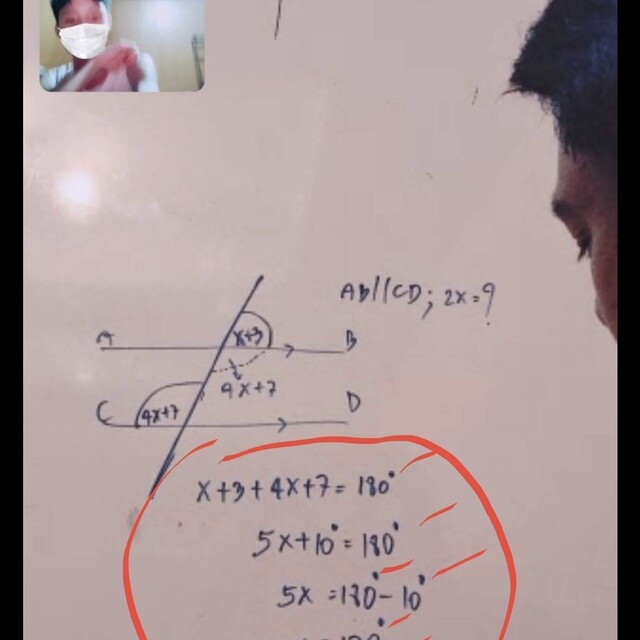 AB//CD; 2x=?
A
x+3
B
4x+7
C
4x+7
D
x+3+4x+7=180°
5x+10°=180°
5x=180°-10°